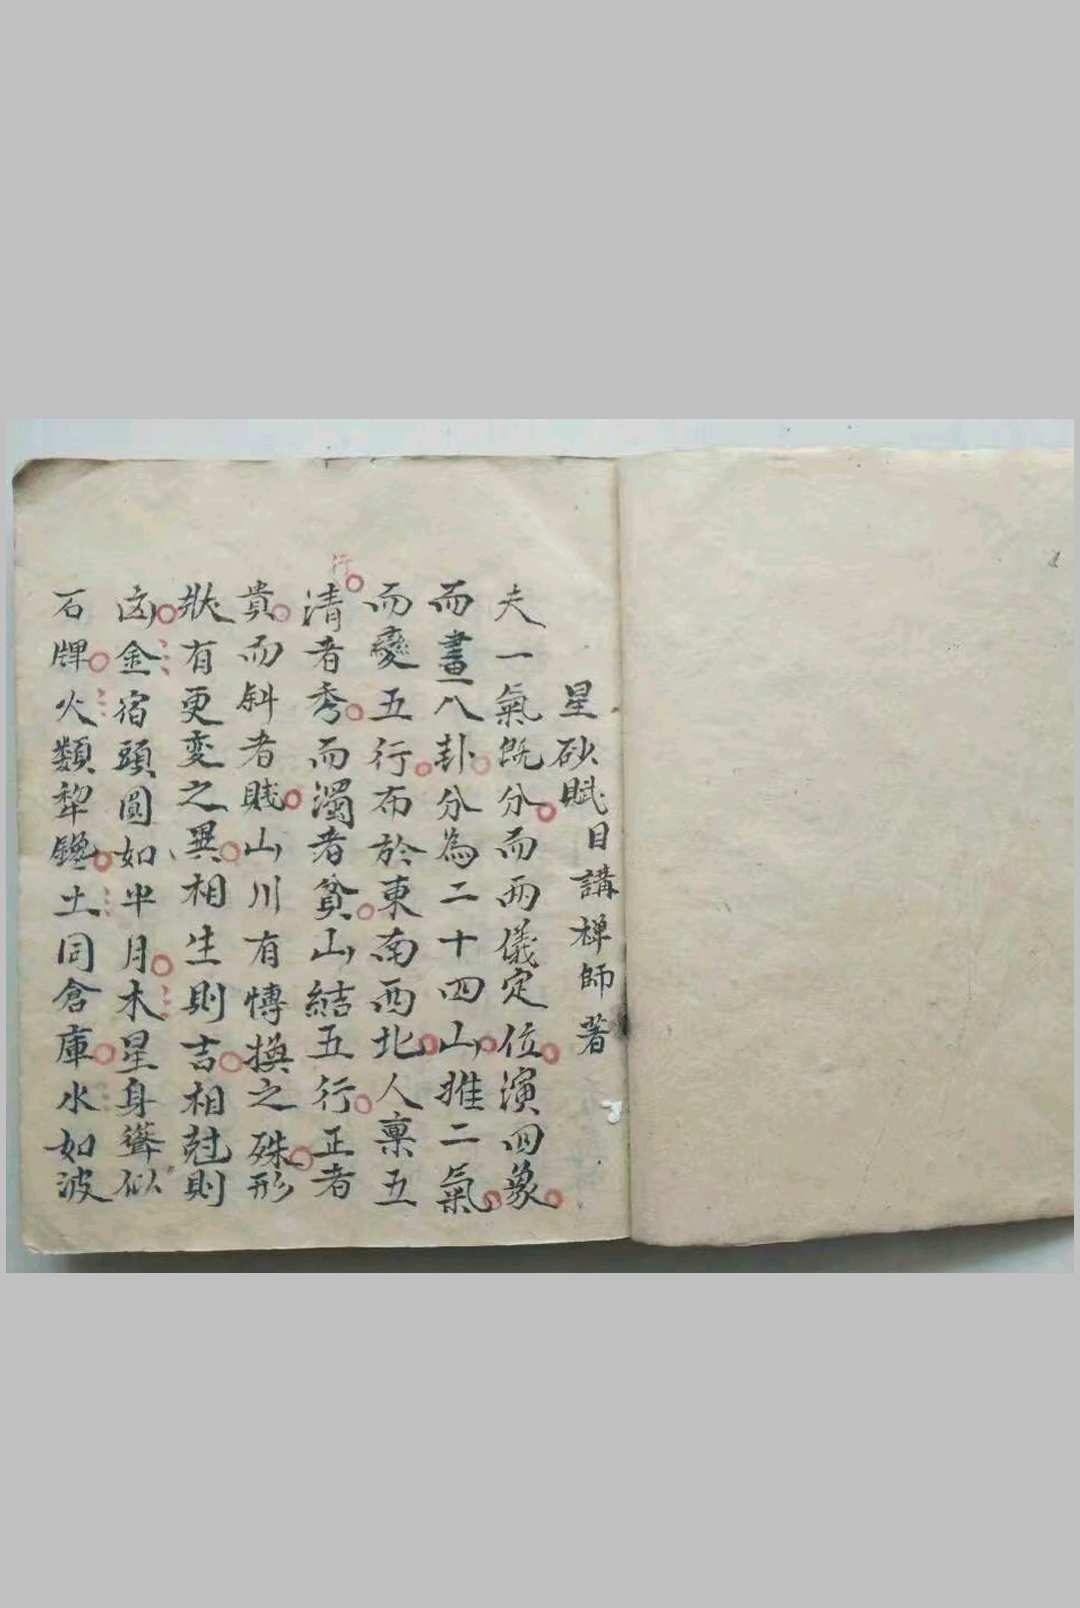 星砂賦目講禅師著
夫一氣既分而兩儀定位演四象
而畫八卦分為二十四山推二氣
而變五行布於東南西北人稟五
行
清者秀而濁者貧山結五行正者
貴而斜者賤山川有慱换之殊形
狀有更変之異相生則吉相尅則
凶金宿頭圓如半月木星身聳似
石牌火類犂鑱土同倉庫水如波